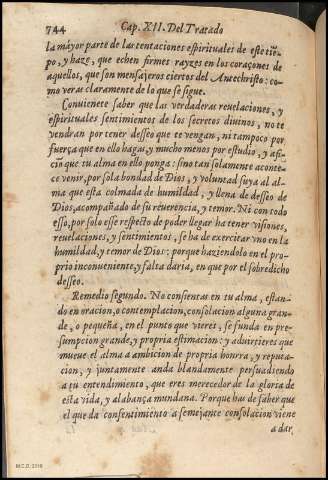 744 Cap. XII. Del Tratado
la mayor parte de las tentaciones espirituales de este tiẽ-
po, y haze, que echen firmes rayzes en los coraçones de
aquellos, que son mensajeros ciertos del Antechristo: co-
mo veras claramente de lo que se sigue.
Conuiene te saber que las verdaderas reuelaciones, y
espirituales sentimientos de los secretos diuinos, no te
vendran por tener desseo que te vengan, ni tampoco por
fuerça que en ello hagas, y mucho menos por estudio, y afi-
cion que tu alma en ello ponga: sino tan solamente aconte-
ce venir, por sola bondad de Dios, y voluntad suya al al-
ma que esta colmada de humildad, y llena de desseo de
Dios, acompañado de su reuerencia, y temor. Ni con todo
esso, por solo esse respecto de poder llegar ha tener visiones,
reuelaciones, y sentimientos, se ha de exercitar vno en la
humildad, y temor de Dios: porque haziendolo en el pro-
prio inconueniente, y falta daria, en que por el sobredicho
desseo.
Remedio segundo. No consientas en tu alma, estan-
do en oracion, o contemplacion, consolacion alguna gran-
de, o pequeña, en el punto que vieres, se funda en pre-
sumpcion grande, y propria estimacion: y aduirtieres que
mueue el alma a ambicion de propria honrra, y reputa-
cion, y juntamente anda blandamente persuadiendo
a tu entendimiento, que eres merecedor de la gloria de
esta vida, y alabança mundana. Porque has de saber que
el que da consentimiento a semejante consolacion viene
a dar,
M.C.D. 2018